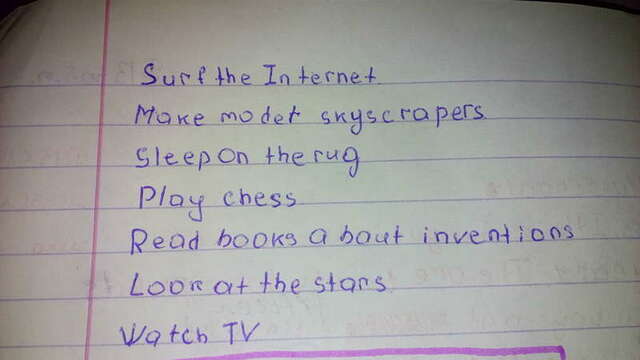 Surf the Internet
Make model skyscrapers
Sleep on the rug
Play chess
Read books about inventions
Look at the stars
Watch TV